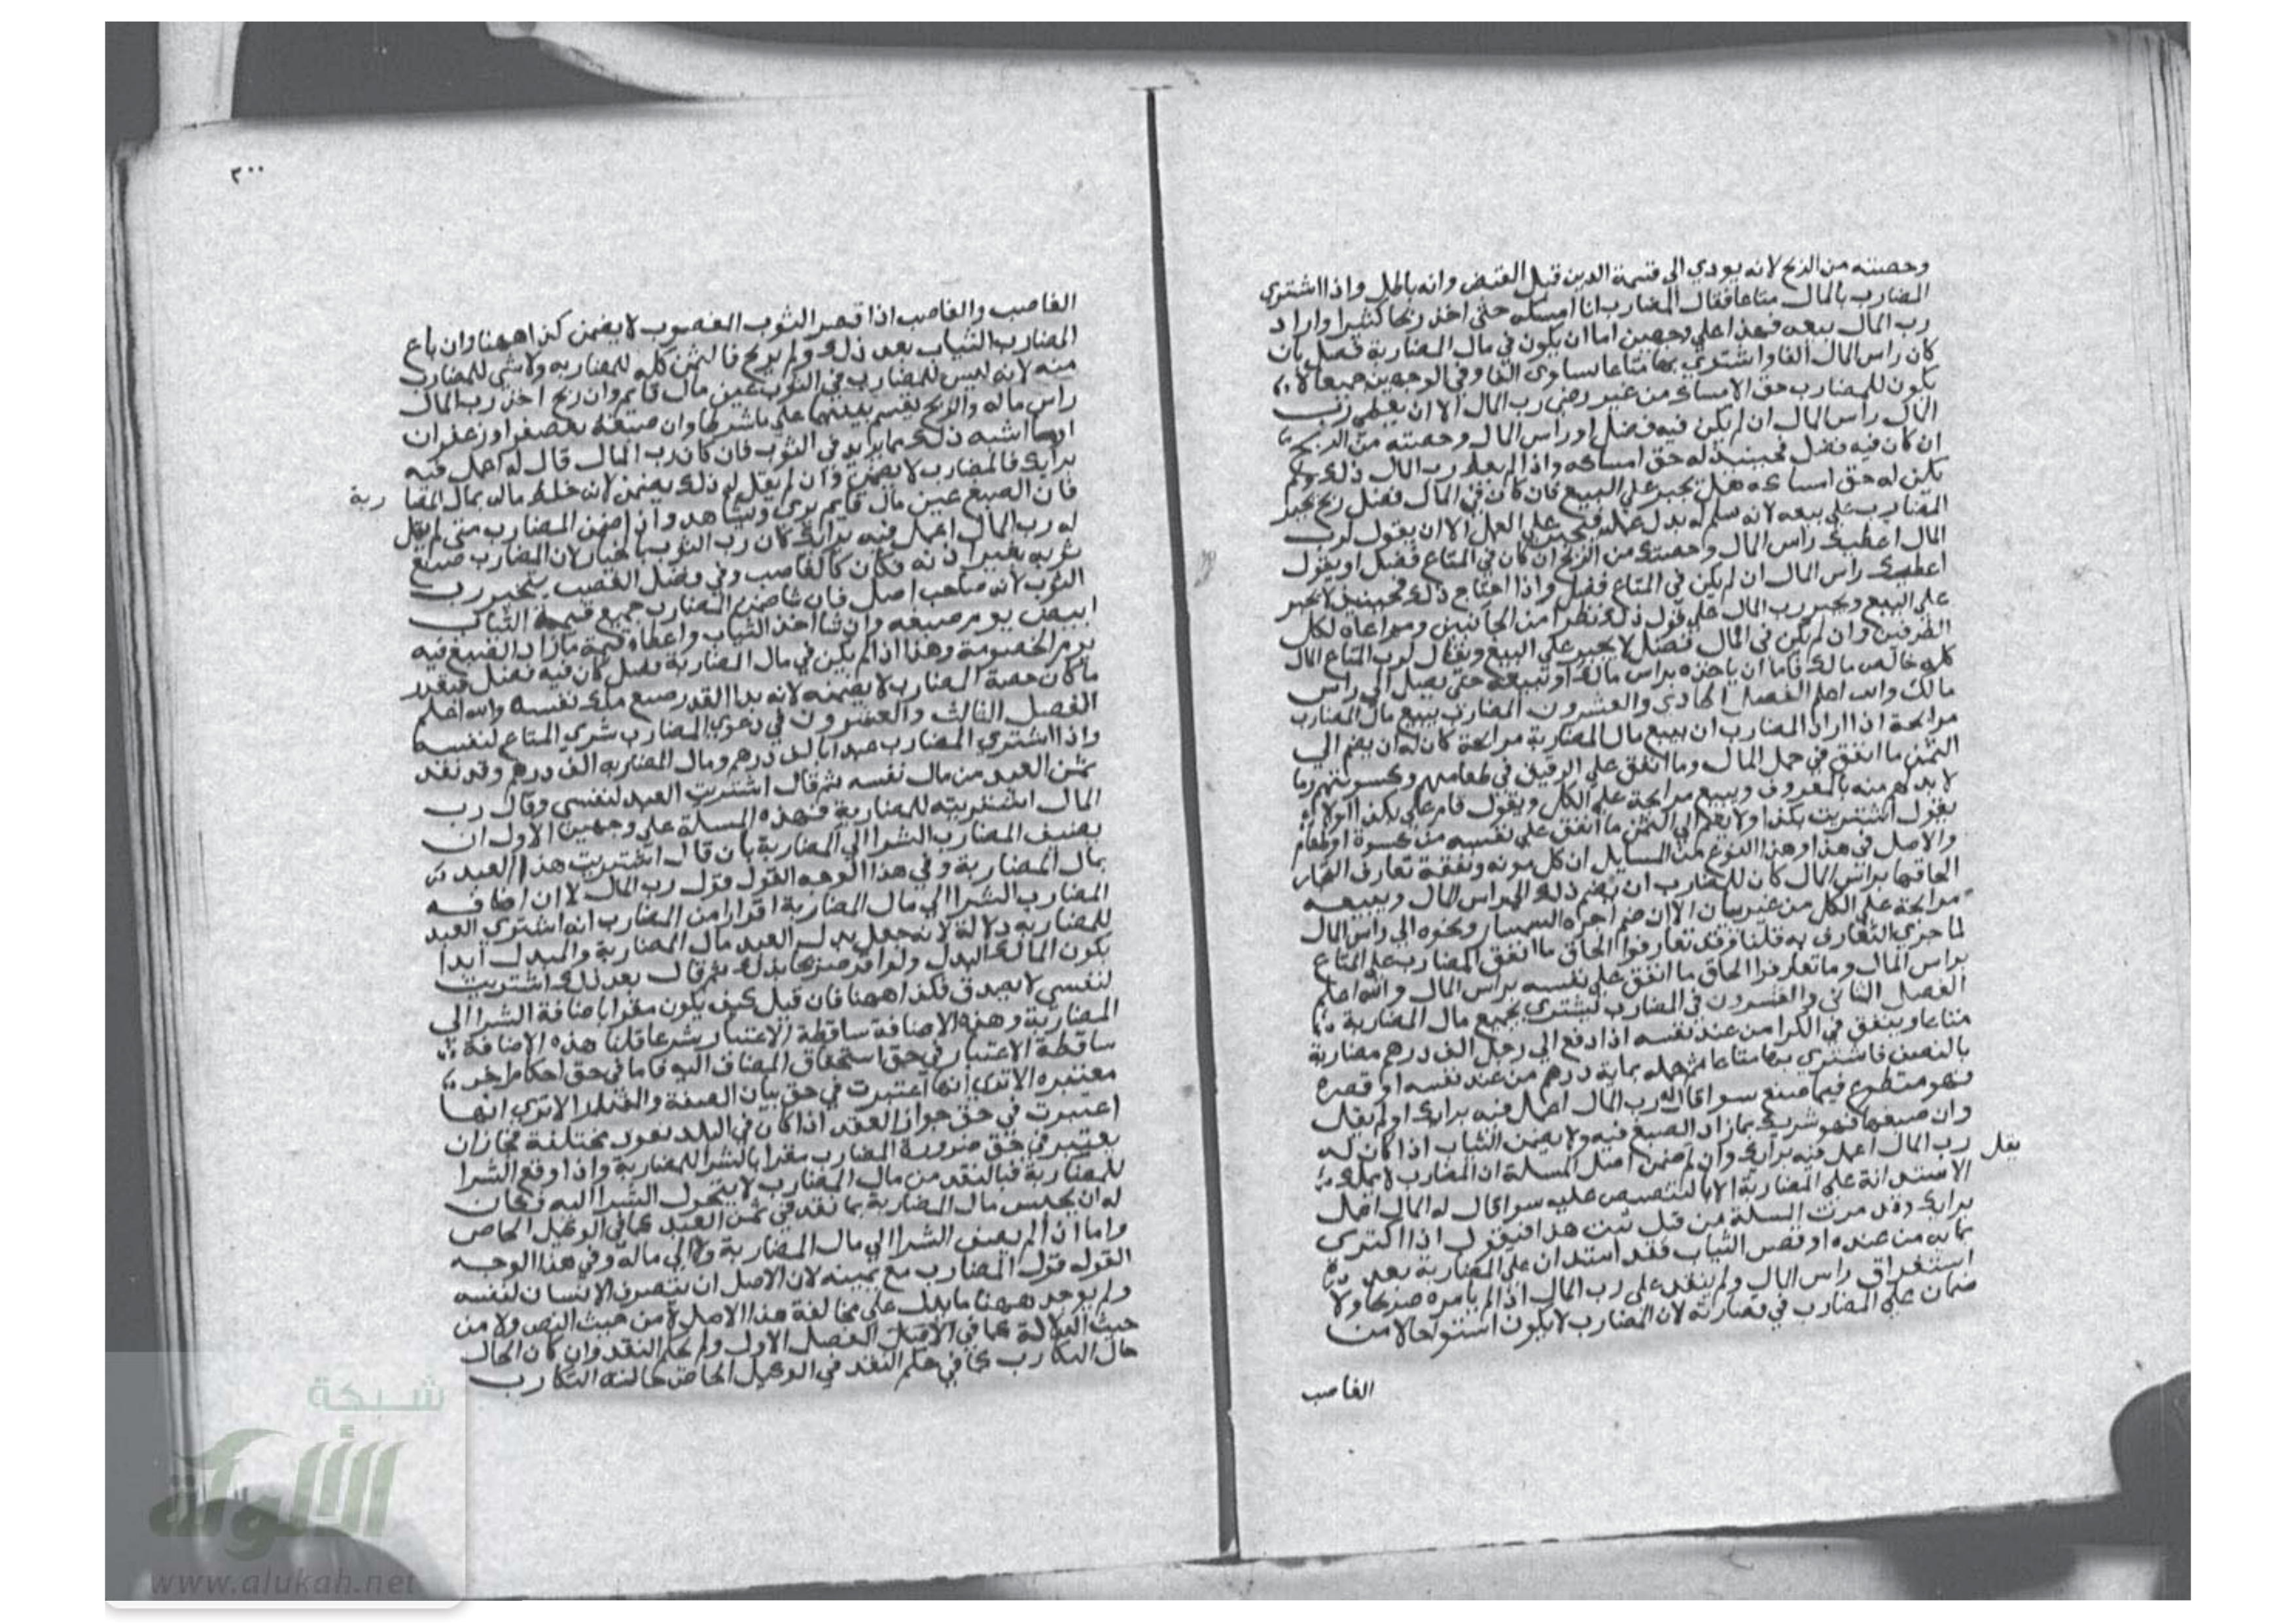 وحصته من الربح لانه يودي الى قسمة الدين قبل القبض وانه باطل واذا اشترى
المضارب بالمال متاعا فقال المضارب انا امسكه حتى اخذ ربحا كثيرا واراد
رب المال بيعه فهذا علي وجهين اما ان يكون في مال المضاربة فضل بان
كان راس المال الفا واشتري بها متاعا يساوى الفا وفي الوجهين جميعا لا
يكون للمضارب حق الامساك من غير رضى رب المال الا ان يعطي رب
المال راس المال ان لم يكن فيه فضل او راس المال وحصته من الربح
ان كان فيه فضل فحينيذ له حق امساكه واذا لم يعط رب المال ذلك ولم
يكن له حق امساكه هل يجبر علي البيع فان كان في المال فضل ربح يجبر
المضارب علي بيعه لانه سلم له بدل عمله فيجبر علي العمل الا ان يقول لرب
المال اعطيك راس المال وحصتك من الربح ان كان في المتاع فضل او يقول
اعطيك راس المال ان لم يكن في المتاع فضل واذا احتاج ذلك فحينيذ لا يجبر
علي البيع ويجبر رب المال علي قبول ذلك نظرا من الجانبين ومراعاة لكل
الطرفين وان لم يكن في المال فضل لا يجبر علي البيع ويقال لرب المتاع المال
كله خالص مالك فاما ان ياخذه براس مالك او تبيعه حتى يصل الي راس
مالك والله اعلم الفصل الحادي والعشرون المضارب يبيع مال المضارب
مرابحة اذا اراد المضارب ان يبيع مال المضاربة مرابحة كان له ان يضم الي
الثمن ما انفق في حمل المال وما انفق علي الرقيق في طعامهم وكسوتهم وما
لا بد لهم منه بالمعروف ويبيع مرابحة علي الكل ويقول قام علي بكذا ولا
يقول اشتريت بكذا ولا يضم الي الثمن ما انفق علي نفسه من كسوة او طعام
والاصل في هذا وهذا النوع من المسايل ان كل مونه ونفقة تعارف التجار
الحاقها براس المال كان للمضارب ان يضم ذلك الي راس المال ويبيعه
مرابحة علي الكل من غير بيان الا ان ضم اجرة السمسار ونحوه الي راس المال
لما جري التعارف به قلنا وقد تعارفوا الحاق ما انفق المضارب علي المتاع
براس المال وما تعارفوا الحاق ما انفق علي نفسه براس المال والله اعلم
الفصل الثاني والعشرون في المضارب ليشتري بجميع مال المضاربة
متاعا وينفق في الكرا من عند نفسه اذا دفع الي رجل الف درهم مضاربة
بالنصف فاشترى بها متاعا ثم حمله بماية درهم من عند نفسه او قصره
فهو متطوع فيما صنع سوا قال له رب المال اعمل فيه برايك اولم يقل
وان صبغها فهو شريك بما زاد الصبغ فيه ولا يضمن الثياب اذا كان له
رب المال اعمل فيه برايك وان لم ضمن اصل المسلة ان المضارب لا يملك
يقل
الاستدانة علي المضاربة الا بالتنصيص عليه سوا قال له المال اعمل
برايك وقد مرت المسلة من قبل ثبت هذا فيقول اذا اكترى
بمايه من عنده او قصر الثياب فقد استدان علي المضاربة بعد
استغراق راس المال ولم ينفد على رب المال اذا لم يامره صريحا ولا
ضمان علي المضارب في قصارته لان المضارب لا يكون اسوا حالا من
الغاصب
٣٠٠
الغاصب والغاصب اذا قصر الثوب المغصوب لا يضمن كذا ههنا وان باع
المضارب الثياب بعد ذلك ولم يربح فالثمن كله للمضاربه ولا شي للمضارب
منه لانه ليس للمضارب في الثوب عين مال قايم وان ربح اخذ رب المال
راس ماله والربح يقسم بينهما علي ما شرطا وان صبغه بعصفر او زعفران
او ما اشبه ذلك مما يزيد في الثوب فان كان رب المال قال له اعمل فيه
برايك فالمضارب لا يضمن وان لم يقل له ذلك يضمن لانه خلط ماله بمال المضا ربة
فان الصبغ عين مال قايم يرى ويشاهد واذا ضمن المضارب متى لم يقل
له رب المال اعمل فيه برايك كان رب الثوب بالخيار لان المضارب صبغ
ثوبه بغير اذنه فكان كالغاصب وفي فصل الغصب يتخير رب
الثوب لانه صاحب اصل فان شا ضمن المضارب جميع قيمة الثياب
ابيض يوم صبغه وان شا اخذ الثياب واعطاه قيمة ما زاد الصبغ فيه
يوم الخصومة وهذا اذا لم يكن في مال المضاربة فضل كان فيه فضل فبقدر
ما كان حصة المضارب لا يضمنه لانه بهذا القدر صبغ ملك نفسه والله اعلم
الفصل الثالث والعشرون في دعوي المضارب شري المتاع لنفسه
واذا اشتري المضارب عبدا بالف درهم ومال المضاربه الف درهم وقد نقد
ثمن العبد من مال نفسه ثم قال اشتريت العبد لنفسي وقال رب
المال اشتريته للمضاربة فهذه المسلة علي وجهين الاول ان
يضيف المضارب الشرا الي المضاربة بان قال اشتريت هذا العبد
بمال المضاربة وفي هذا الوجه القول قول رب المال لان اضافة
المضارب الشرا الي مال المضاربة اقرارا من المضارب انه اشترى العبد
للمضاربه دلالة لانه جعل بدل العبد مال المضاربة والمبدل ابدا
يكون المالك البدل ولو اقر صريحا بذلك ثم قال بعد ذلك اشتريت
لنفسي لا يصدق فكذا ههنا فان قيل كيف يكون مقرا باضافة الشرا الي
المضاربة وهذه الاضافة ساقطة الاعتبار شرعا قلنا هذه الاضافة
ساقطة الاعتبار في حق استحقاق المضاف اليه فاما في حق احكام اخر
معتبره الا ترى انها اعتبرت في حق بيان الصفة والقدر الا ترى انها
اعتبرت في حق جواز العقد اذا كان في البلد نقود مختلفة فجاز ان
يعتبر في حق ضرورة المضارب مقرا بالشرا للمضاربة واذا وقع الشرا
للمضاربة فبالنقد من مال المضارب لا يتحول الشرا اليه فكان
له ان يحبس مال المضاربة بما نقد في ثمن العبد كما في الوكيل الخاص
واما اذا لم يضف الشرا الي مال المضاربة ولا الي ماله وفي هذا الوجه
القول قول المضارب مع يمينه لان الاصل ان يتصرف الانسان لنفسه
ولم يوجد ههنا ما يدل علي مخالفة هذا الاصل لا من حيث النص ولا من
حيث الدلالة كما في الفصل الاول ولم يحكم النقد وان كان الحال
حال التكارب كما في حكم النقد في الوكيل الخاص حالته التكارب
شبكة
الألوكة
www.alukah.net